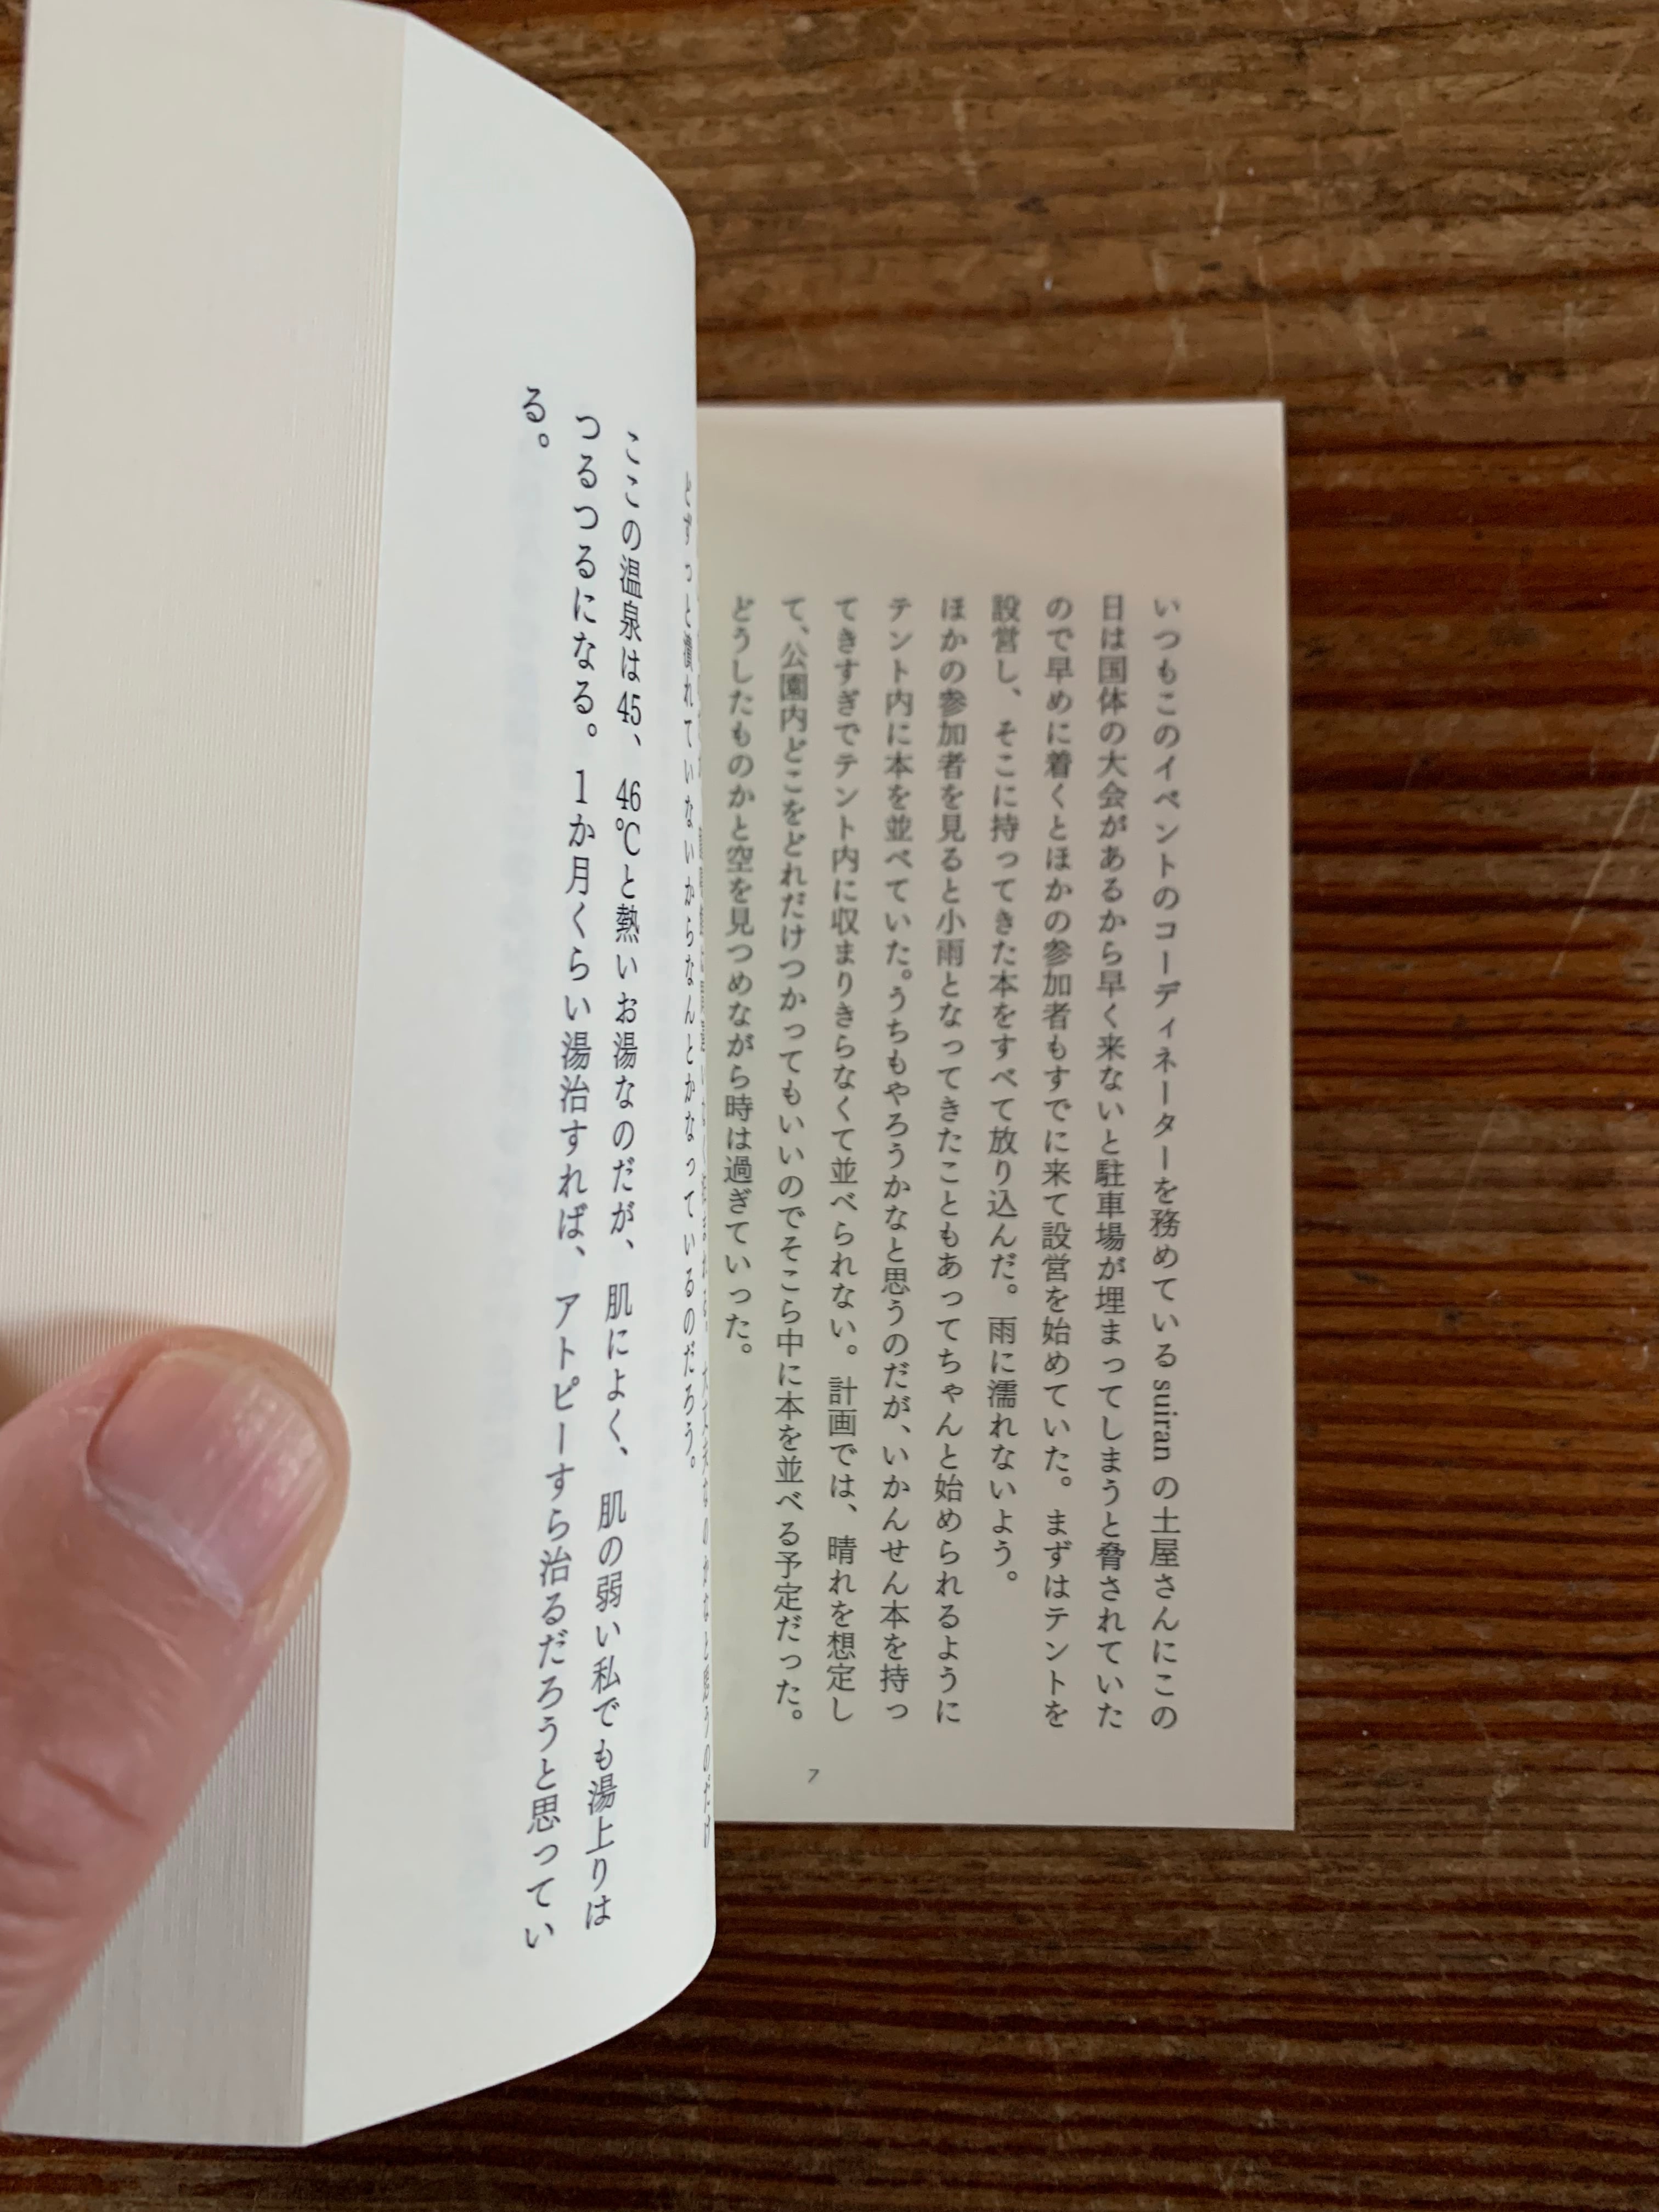 いつもこのイベントのコーディネーターを務めている suiran の土屋さんにこの
日は国体の大会があるから早く来ないと駐車場が埋まってしまうと脅されていた
ので早めに着くとほかの参加者もすでに来て設営を始めていた。まずはテントを
設営し、そこに持ってきた本をすべて放り込んだ。雨に濡れないよう。
ほかの参加者を見ると小雨となってきたこともあってちゃんと始められるように
テント内に本を並べていた。うちもやろうかなと思うのだが、いかんせん本を持っ
てきすぎでテント内に収まりきらなくて並べられない。計画では、晴れを想定し
て、公園内どこをどれだけつかってもいいのでそこら中に本を並べる予定だった。
どうしたものかと空を見つめながら時は過ぎていった。
7
とずっと潰れていないからなんとかなっているのだろう。
ここの温泉は45、46℃と熱いお湯なのだが、肌によく、肌の弱い私でも湯上りは
つるつるになる。1か月くらい湯治すれば、アトピーすら治るだろうと思ってい
る。